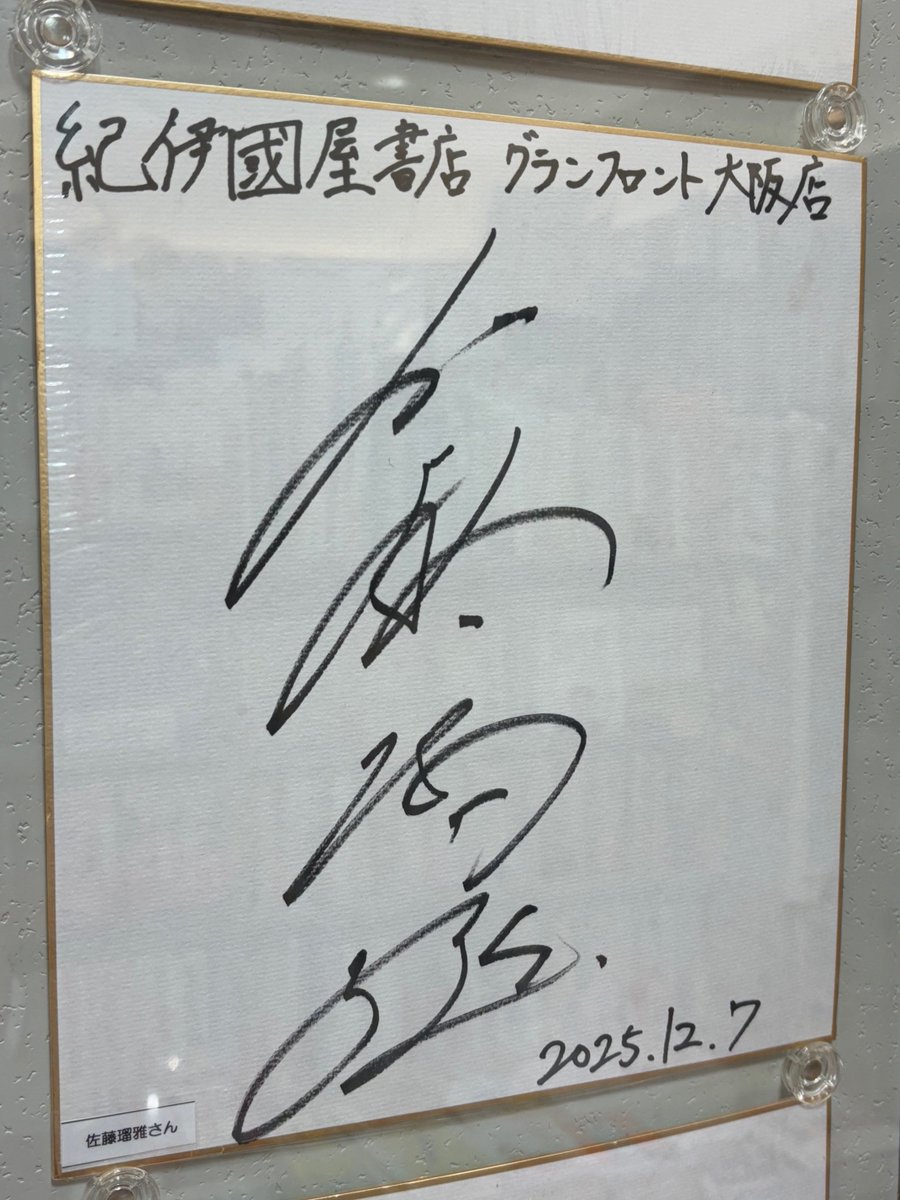 紀伊國屋書店 グランフロント大阪店
2025.12.7
佐藤瑠雅さん